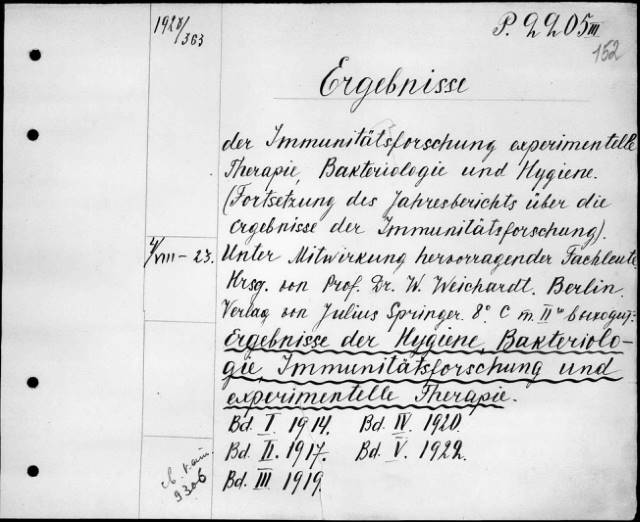 P. 2205 III
152
1924/363
Ergebnisse
der Immunitätsforschung experimentelle
Therapie, Bakteriologie und Hygiene.
(Fortsetzung des Jahresberichts über die
ergebnisse der Immunitätsforschung).
4/VIII – 23. Unter Mitwirkung hervorragender Fachleute
Hrsg. von Prof. Dr. W. Weichardt. Berlin.
Verlag von Julius Springer. 8° С т. IIго выходит:
Ergebnisse der Hygiene, Bakteriolo-
gie, Immunitätsforschung und
experimentelle Therapie.
Bd. I. 1914. Bd. IV. 1920.
Bd. II. 1917. Bd. V. 1922.
Bd. III. 1919.
9306